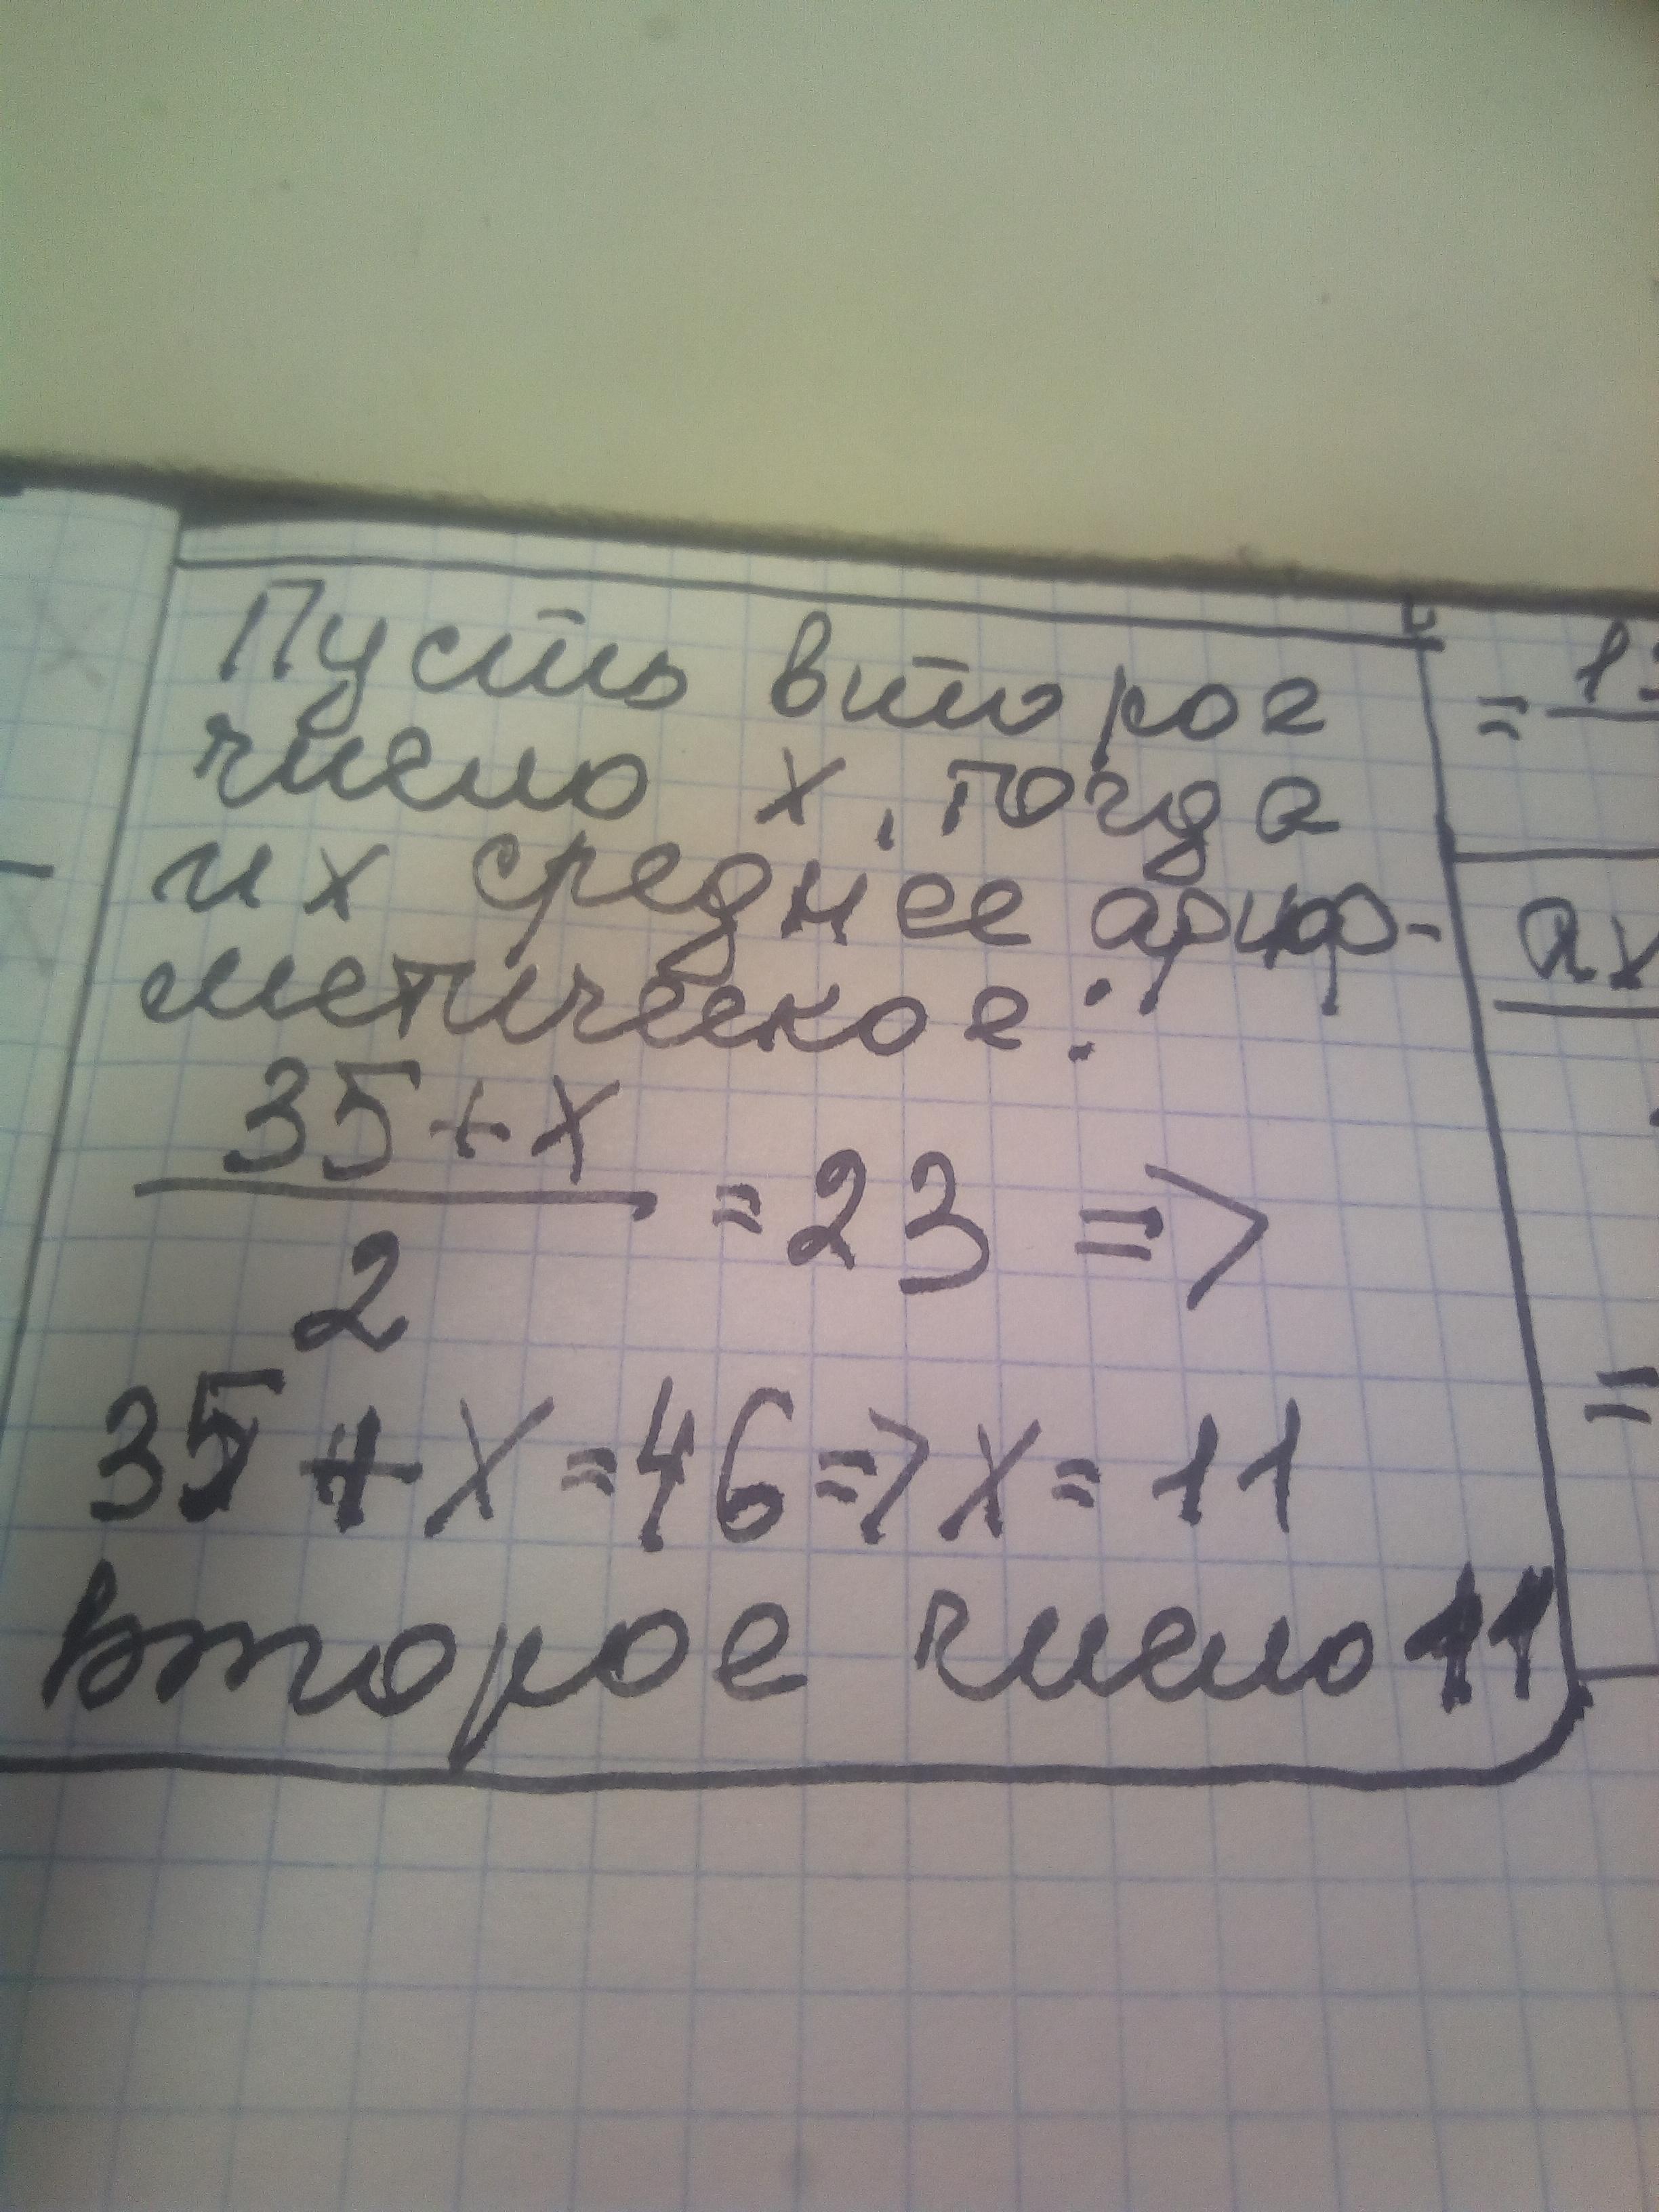 Пусть второе
число x, тогда
их среднее ариф-
метическое:
35+x
2
=23 =>
35+x=46=>x=11
второе число 11
= 13
ax
=